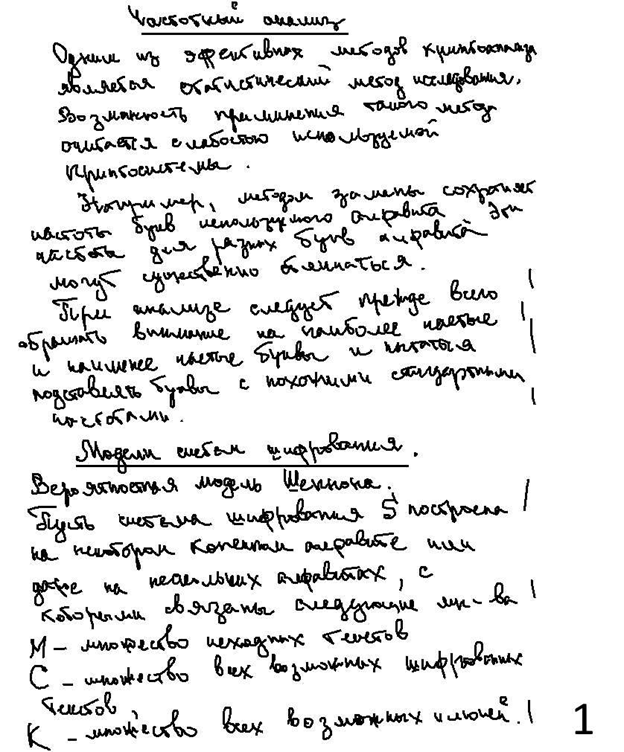 Частотный анализ
Одним из эффективных методов криптоанализа
является статистический метод исследования.
Возможность применения такого метода
считается слабостью используемой
криптосистемы.
Например, методом замены сохраняет
частоты букв используемого алфавита. Эти
частоты для разных букв алфавита
могут существенно отличаться.
При анализе следует прежде всего
обращать внимание на наиболее частые
и наименее частые буквы и пытаться
подставлять буквы с похожими стандартными
частотами.
Модели систем шифрования.
Вероятностная модель Шеннона.
Пусть система шифрования S построена
на некотором конечном алфавите или
даже на нескольких алфавитах, с
которыми связаны следующие мн-ва
M – множество исходных текстов
C – множество всех возможных шифрованных
текстов,
K – множество всех возможных ключей.
1